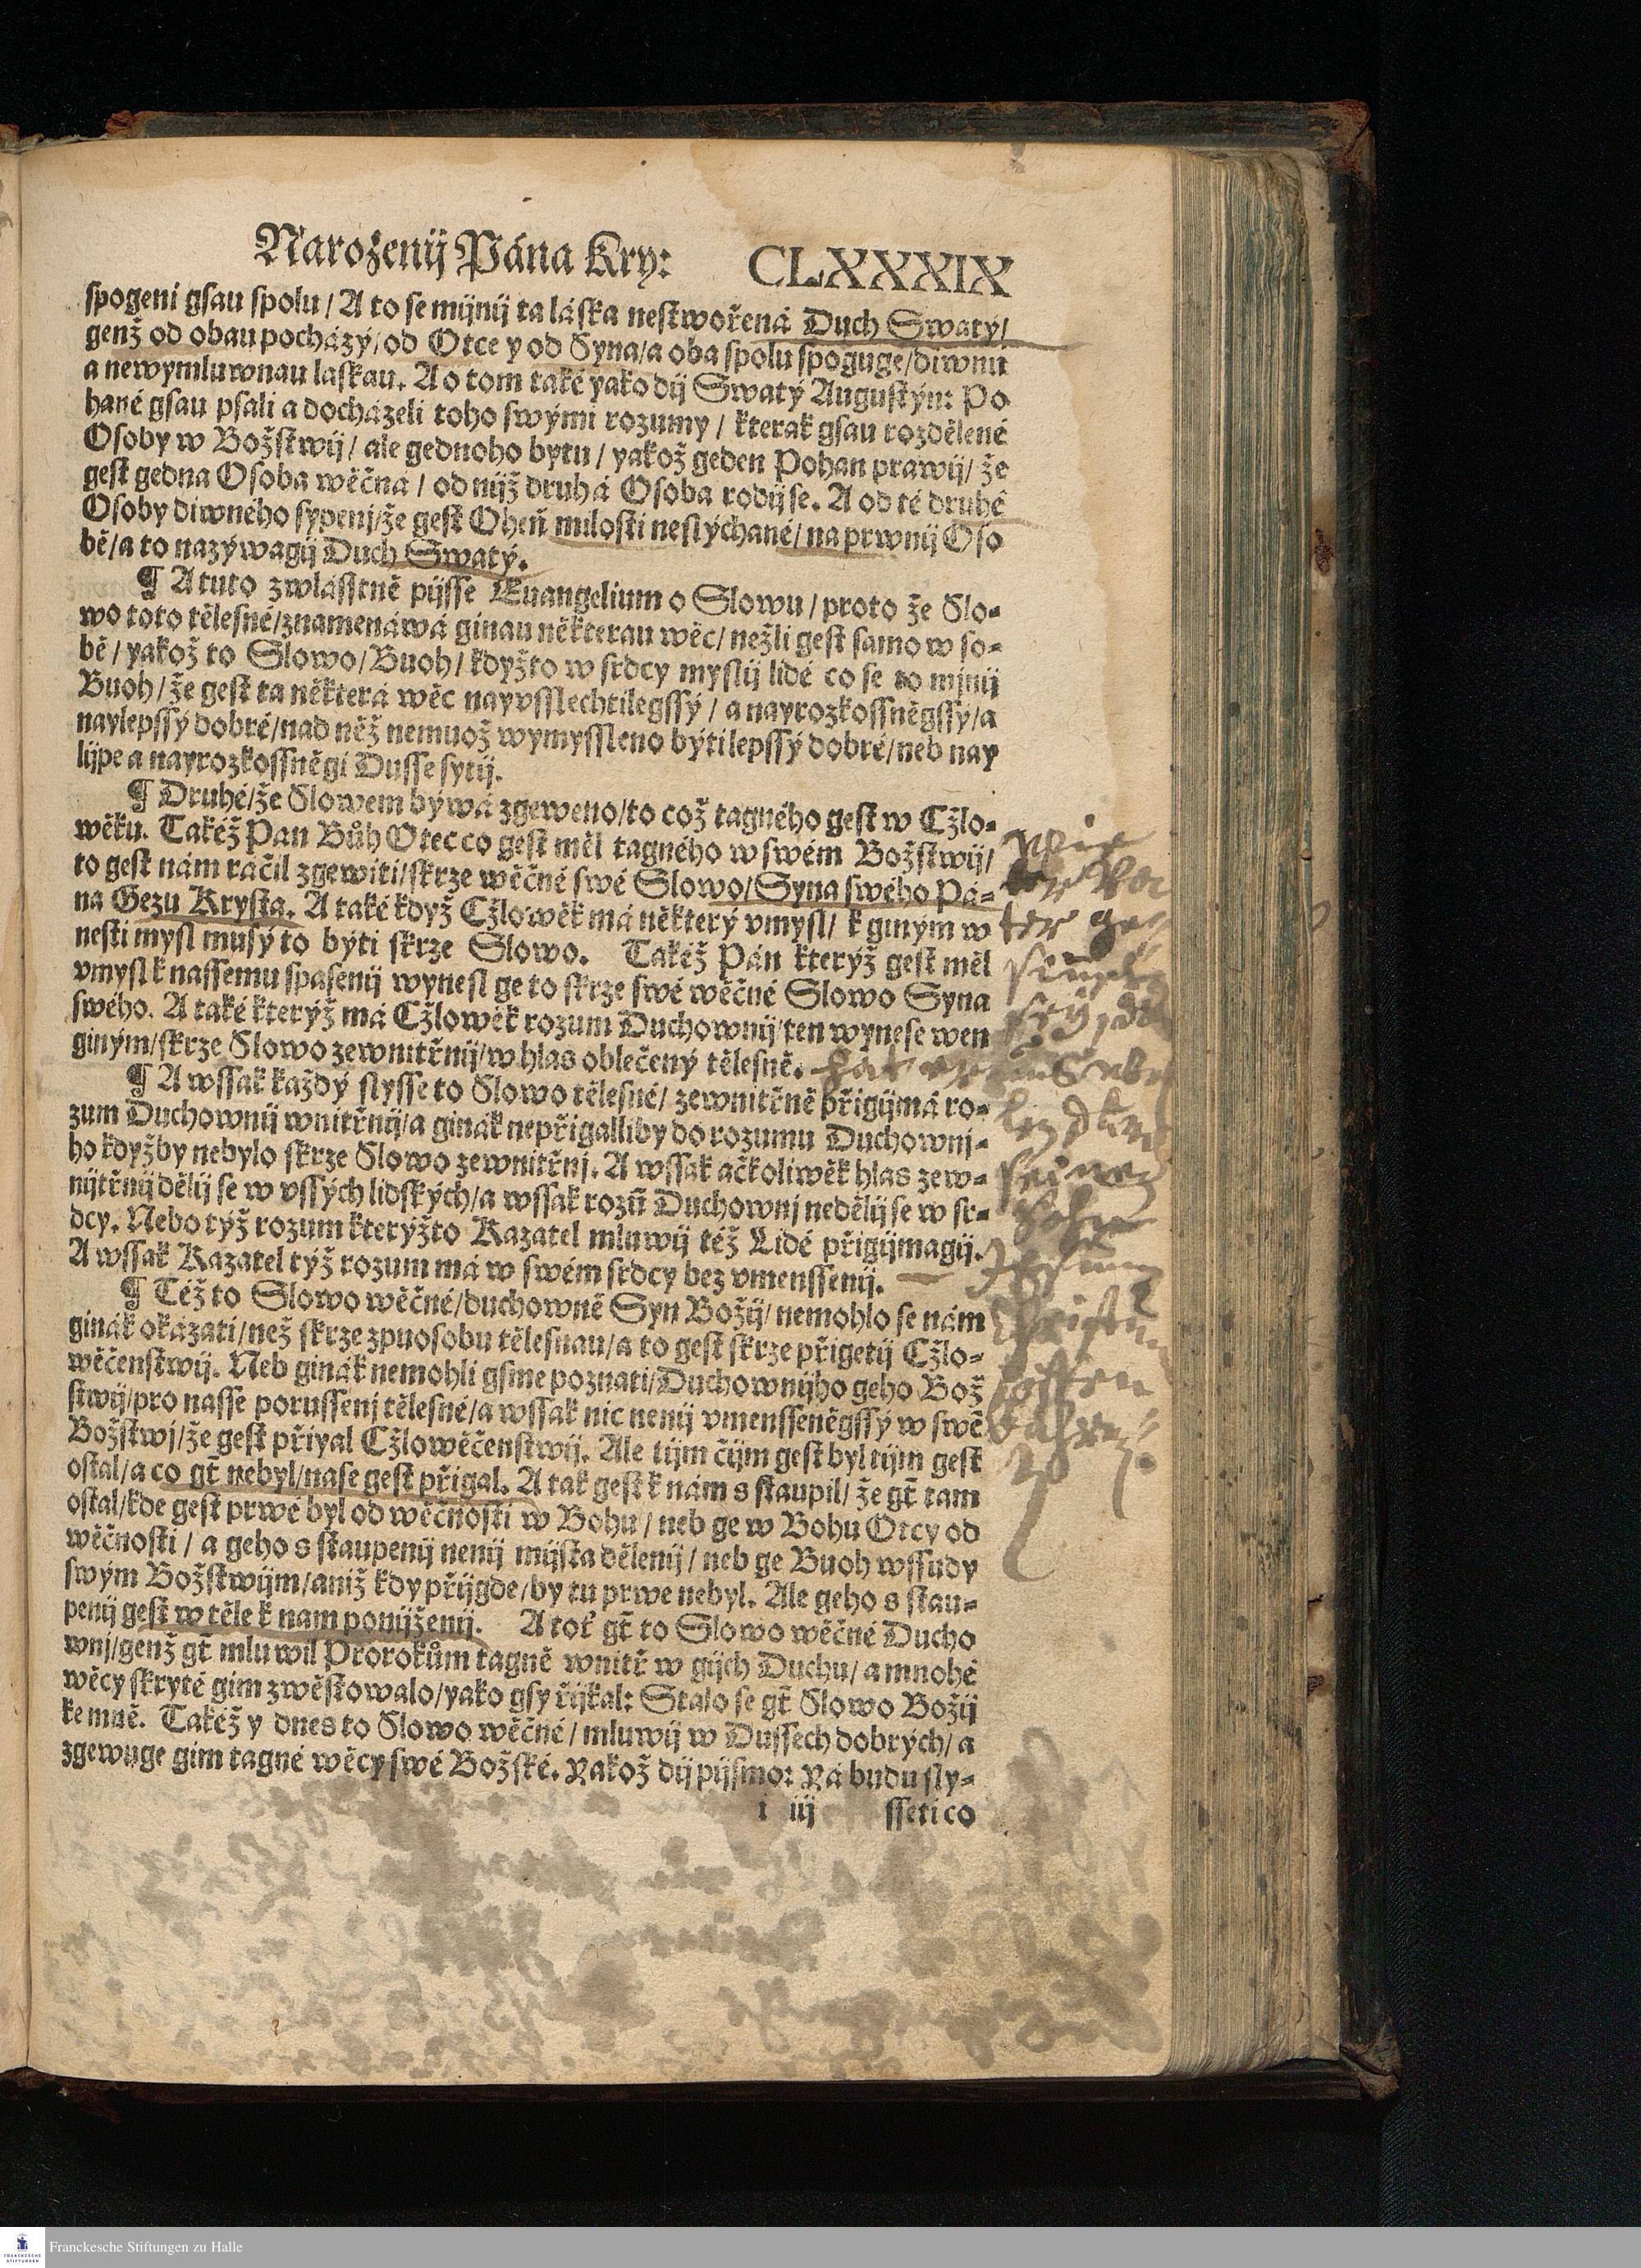 Narozenij Pána Kry: CLXXXIX
spogeni gsau spolu / A to se mijnij ta láska nestwořená Duch Swatý /
genž od obau pocházý / od Otce y od Syna / a oba spolu spoguge / diwnu
a newymluwnau laskau. A o tom také yako dij Swatý Augustýn: Po
hané gsau psali a docházeli toho swými rozumy / kterak gsau rozdělené
Osoby w Božstwij / ale gednoho bytu / yakož geden Pohan prawij / že
gest gedna Osoba wěčna / od nijž druhá Osoba rodij se. A od té druhé
Osoby diwného sypenj / že gest Oheň milosti neslýchané / na prwnij Oso
bě / a to nazýwagij Duch Swatý.
¶ A tuto zwlásstně pijsse Euangelium o Slowu / proto že Slo-
wo toto tělesné / znamenáwá ginau některau wěc / nežli gest samo w so-
bě / yakož to Slowo / Buoh / kdyžto w srdcy myslij lidé co se to mjnij
Buoh / že gest ta některá wěc nayvsslechtilegssý / a nayrozkossněgssý / a
naylepssý dobré / nad něž nemuož wymyssleno býti lepssý dobré / neb nay
lijpe a nayrozkossněgi Dusse sytij.
¶ Druhé / že Slowem býwá zgeweno / to což tagného gest w Cžlo-
wěku. Takéž Pan Bůh Otec co gest měl tagného w swém Božstwij /
to gest nám ráčil zgewiti / skrze wěčné swé Slowo / Syna swého Pá-
na Gezu Krysta. A také když Cžlowěk má některý vmysl / k giným w
nesti mysl musý to býti skrze Slowo. Takéž Pán kterýž gest měl
vmysl k nassemu spasenij wynesl ge to skrze swé wěčné Slowo Syna
swého. A také kterýž má Cžlowěk rozum Duchownij / ten wynese wen
giným / skrze Slowo zewnitřnij / w hlas oblečený tělesně.
¶ A wssak každý slysse to Slowo tělesné / zewnitřně přigijmá ro-
zum Duchownij wnitřnij / a ginák nepřigalliby do rozumu Duchownj-
ho kdyžby nebylo skrze Slowo zewnitřnj. A wssak ačkoliwěk hlas zew-
nijtřnij dělij se w vssých lidských / a wssak rozū Duchownj nedělij se w sr-
dcy. Nebo týž rozum kterýžto Kazatel mluwij též Lidé přigijmagij.
A wssak Kazatel týž rozum má w swém srdcy bez vmenssenij.
¶ Též to Slowo wěčné / duchowně Syn Božij / nemohlo se nám
ginák okázati / než skrze zpuosobu tělesnau / a to gest skrze přigetij Cžlo-
wěčenstwij. Neb ginák nemohli gsme poznati / Duchownijho geho Bož
stwij / pro nasse porussenj tělesné / a wssak nic nenij vmensseněgssý w swē
Božstwj / že gest přiyal Cžlowěčenstwij. Ale tijm čijm gest byl tijm gest
ostal / a co gt̄ nebyl / nase gest přigal. A tak gest k nám s staupil / že gt̄ tam
ostal / kde gest prwé byl od wěčnosti w Bohu / neb ge w Bohu Otcy od
wěčnosti / a geho s staupenij nenij mijsta dělenij / neb ge Buoh wssudy
swým Božstwijm / aniž kdy přijgde / by tu prwe nebyl. Ale geho s stau-
penij gest w těle k nam ponijženij. A toť gt̄ to Slowo wěčné Ducho
wnj / genž gt̄ mluwil Prorokům tagně wnitř w gijch Duchu / a mnohé
wěcy skryté gim zwěstowalo / yako gsy řijkal: Stalo se gt̄ Slowo Božij
ke mně. Takéž y dnes to Slowo wěčné / mluwij w Dussech dobrých / a
zgewuge gim tagné wěcy swé Božské. Yakož dij pijsmo: Yá budu sly-
i iij sseti co
Wie
der Va
ter ge
seinen
Sohn
Jesum
Christum
Franckesche Stiftungen zu Halle
FRANCKESCHE
STIFTUNGEN